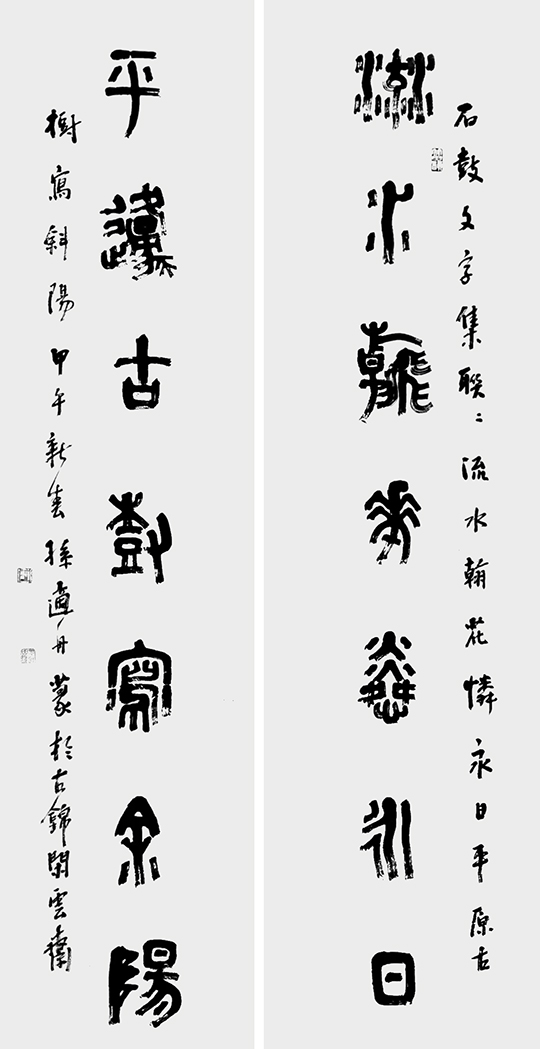 石鼓文字集聯〻流水翰花憐永日平原古
流水翰花憐永日
平原古樹寫余陽
樹寫斜陽甲午新春孫適丹篆於古錦閑雲齋